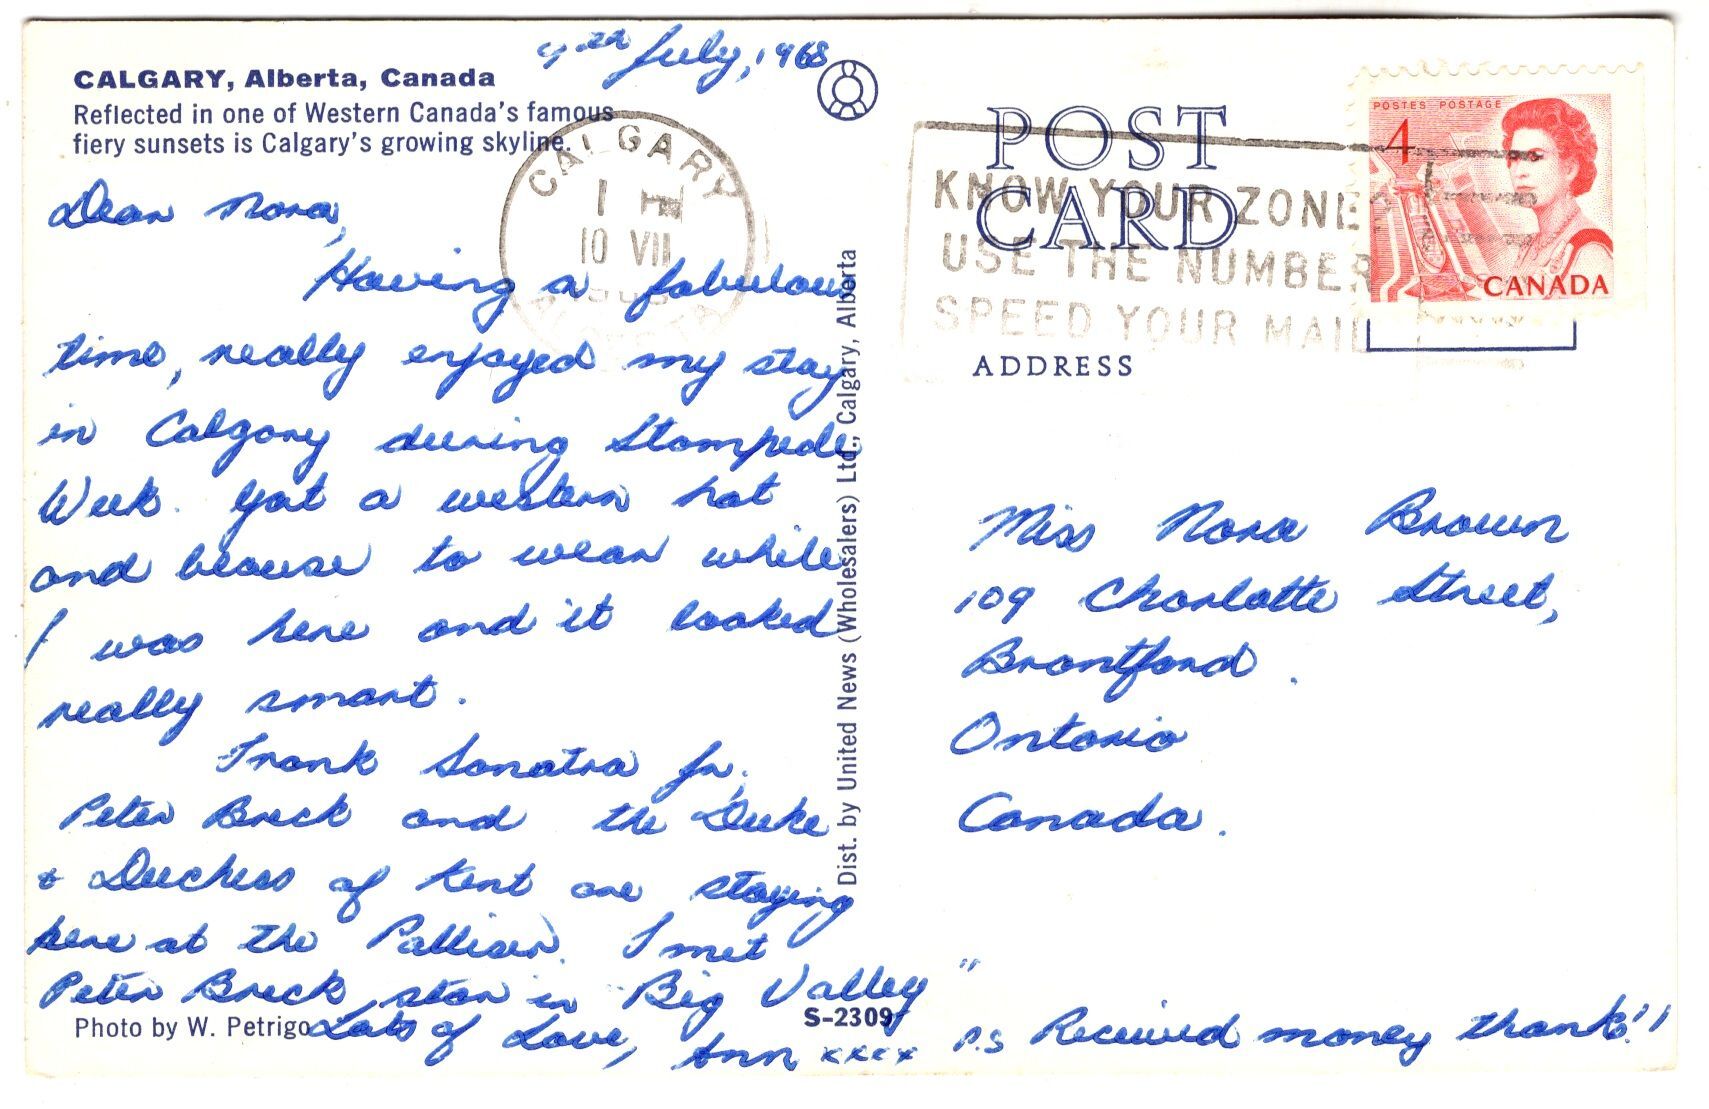 CALGARY, Alberta, Canada
Reflected in one of Western Canada's famous
fiery sunsets is Calgary's growing skyline.
July, 1968
Dear Nora,
Having a fabulous
time, really enjoyed my stay
in Calgary during Stampede
Week. Got a western hat
and blouse to wear while
I was here and it looked
really smart.
Frank Sanatra Jr.
Peter Breck and the Duke
& Duchess of Kent are staying
here at the Palliser. I met
Peter Breck, star in "Big Valley"
Lots of Love, Ann xxxx
P.S Received money thanks!!
Photo by W. Petrigo
S-2309
Dist. by United News (Wholesalers) Ltd., Calgary, Alberta
CALGARY
1
10 VII
ALBERTA
POST
CARD
KNOW YOUR ZONE
USE THE NUMBER
SPEED YOUR MAIL
POSTES POSTAGE
4
CANADA
ADDRESS
Miss Nora Brown
109 Charlotte Street,
Brantford.
Ontario
Canada.